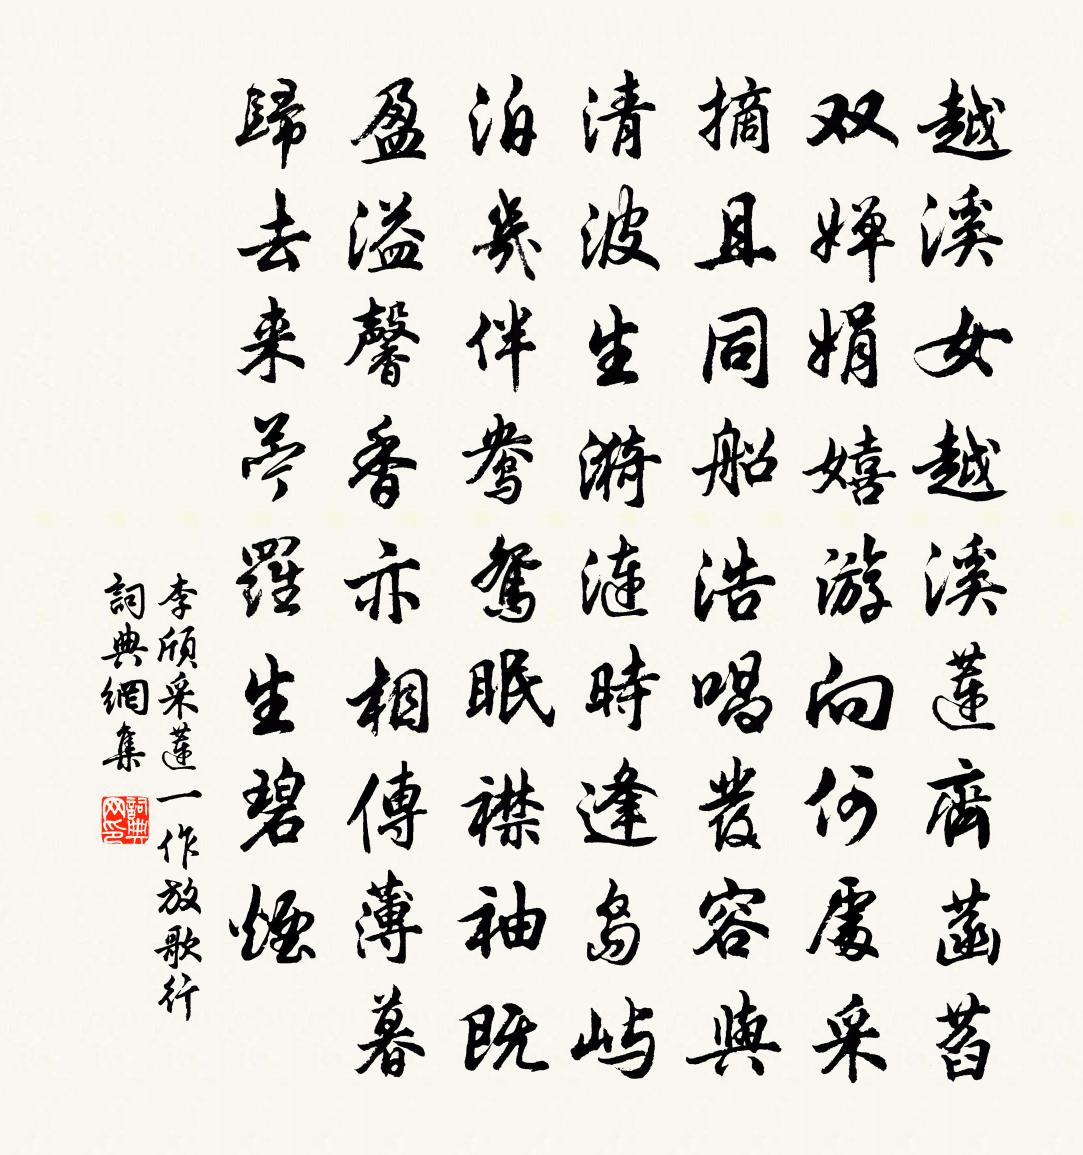 越溪女越溪蓮齊菡萏
双嬋娟嬉游向何處采
摘且同船浩唱發容與
清波生漪漣時逢島嶼
泊幾伴鴛鴦眠襟袖既
盈溢馨香亦相傳薄暮
歸去来苧羅生碧煙
李頎采蓮一作放歌行
詞典網集
詞典网印